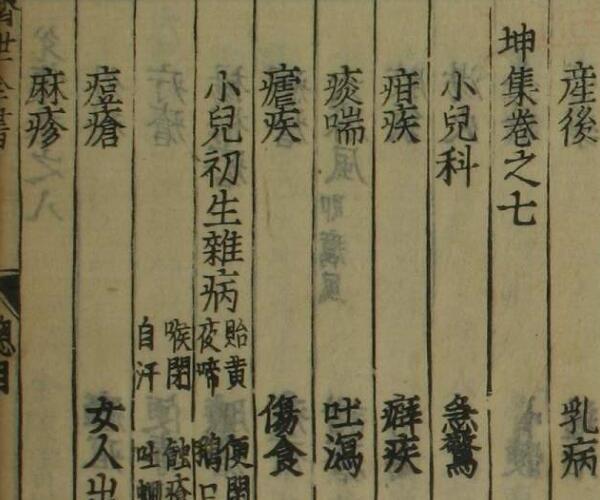 産後 乳病
坤集卷之七
小兒科 急驚
疳疾 癖疾
痰喘 吐瀉
瘧疾 傷食
小兒初生雜病
貽黄 便閉
夜啼 鵝口
喉閉 蝕瘡
自汗 吐
痘瘡 女人出
麻疹
濟世全書 總目